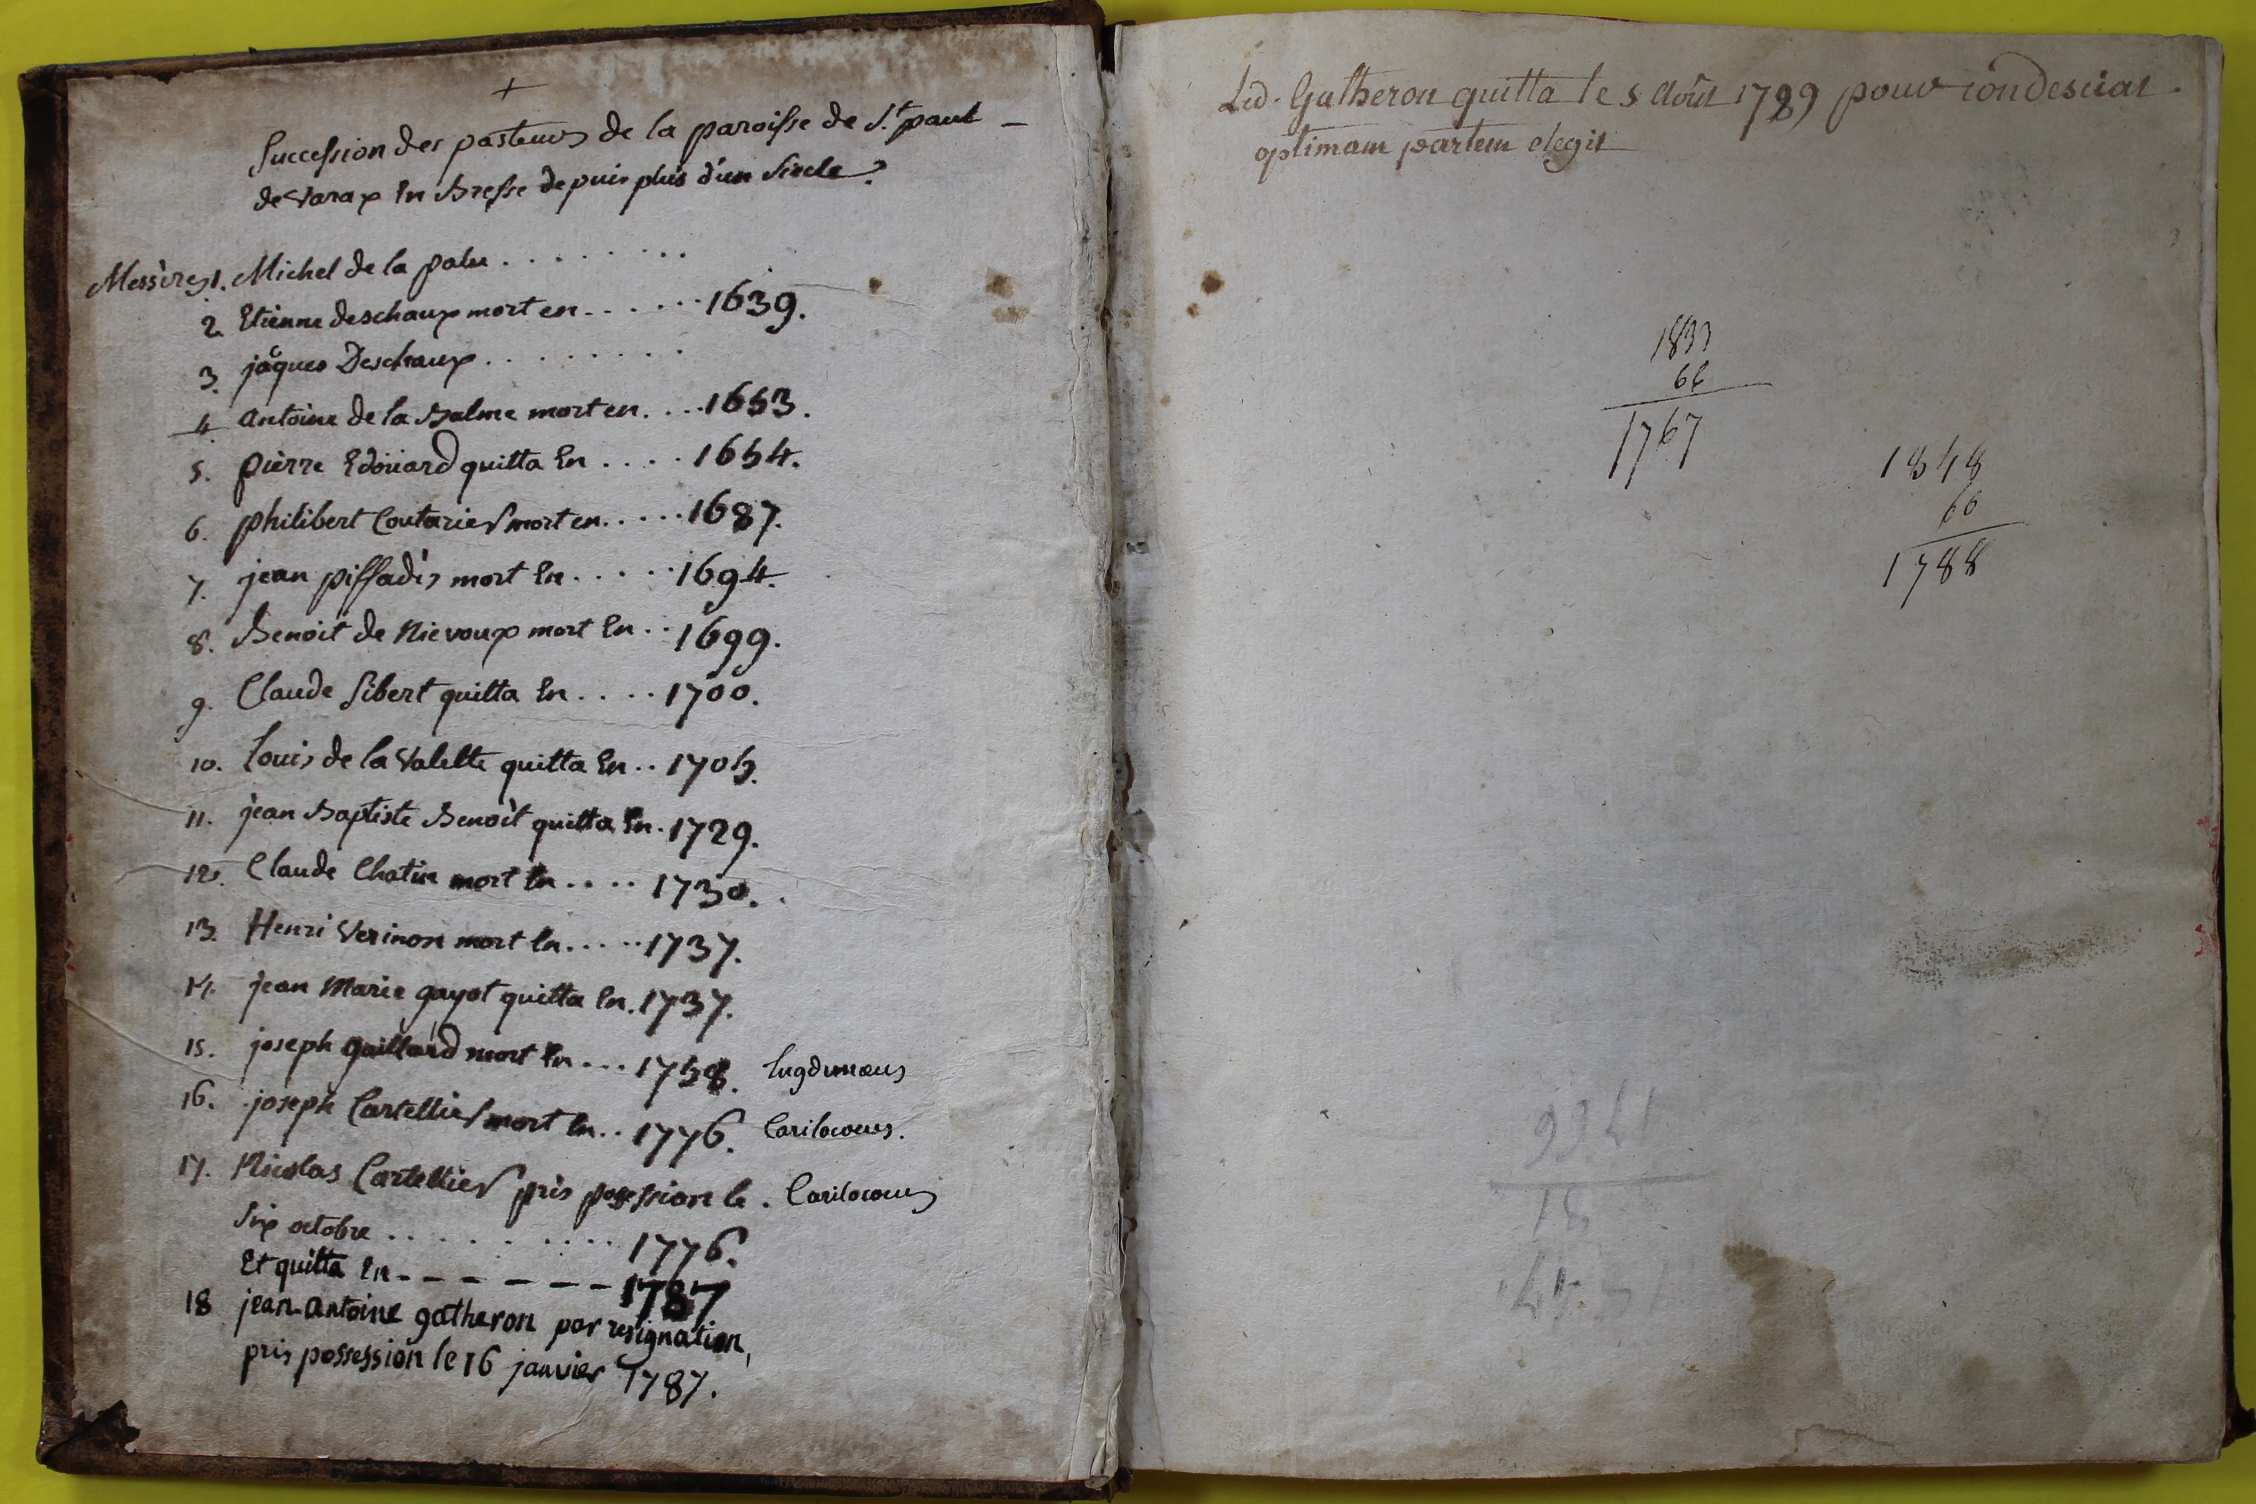 +
Succession des pasteurs de la paroisse de St. paul -
de Varax En Bresse depuis plus d'un Siecle.
Messires 1. Michel de la palu . . . . . . . .
2. Etienne deschaux mort en . . . . . 1639.
3. jacques Deschaux . . . . . . . .
4. antoine de la Balme mort en . . . 1653.
5. pierre Edoüard quitta En . . . . 1654.
6. philibert Coutarier mort en . . . . . 1687.
7. jean piffadis mort En . . . . . 1694.
8. Benoit de Nievoux mort En . . 1699.
9. Claude Sibert quitta En . . . . 1700.
10. Louis de la Valette quitta En . . 1705.
11. jean Baptiste Benoit quitta En . 1729.
12. Claude Chatin mort En . . . . 1730.
13. Henri Verinon mort En . . . . . 1737.
14. jean Marie gayot quitta En . 1737.
15. joseph gaillard mort En . . . 1758. Lugdunaeus
16. joseph Cartellier mort En . . 1776. Carilocous.
17. Nicolas Cartellier pris possession le . Carilocous
Six octobre . . . . . . . . . 1776.
Et quitta En - - - - - - - 1787
18 jean antoine gatheron par resignation,
pris possession le 16 janvier 1787.
Led. Gatheron quitta le 5 Août 1789 pour condesciat.
optimam partem elegit
1833
66
1767
1848
60
1788